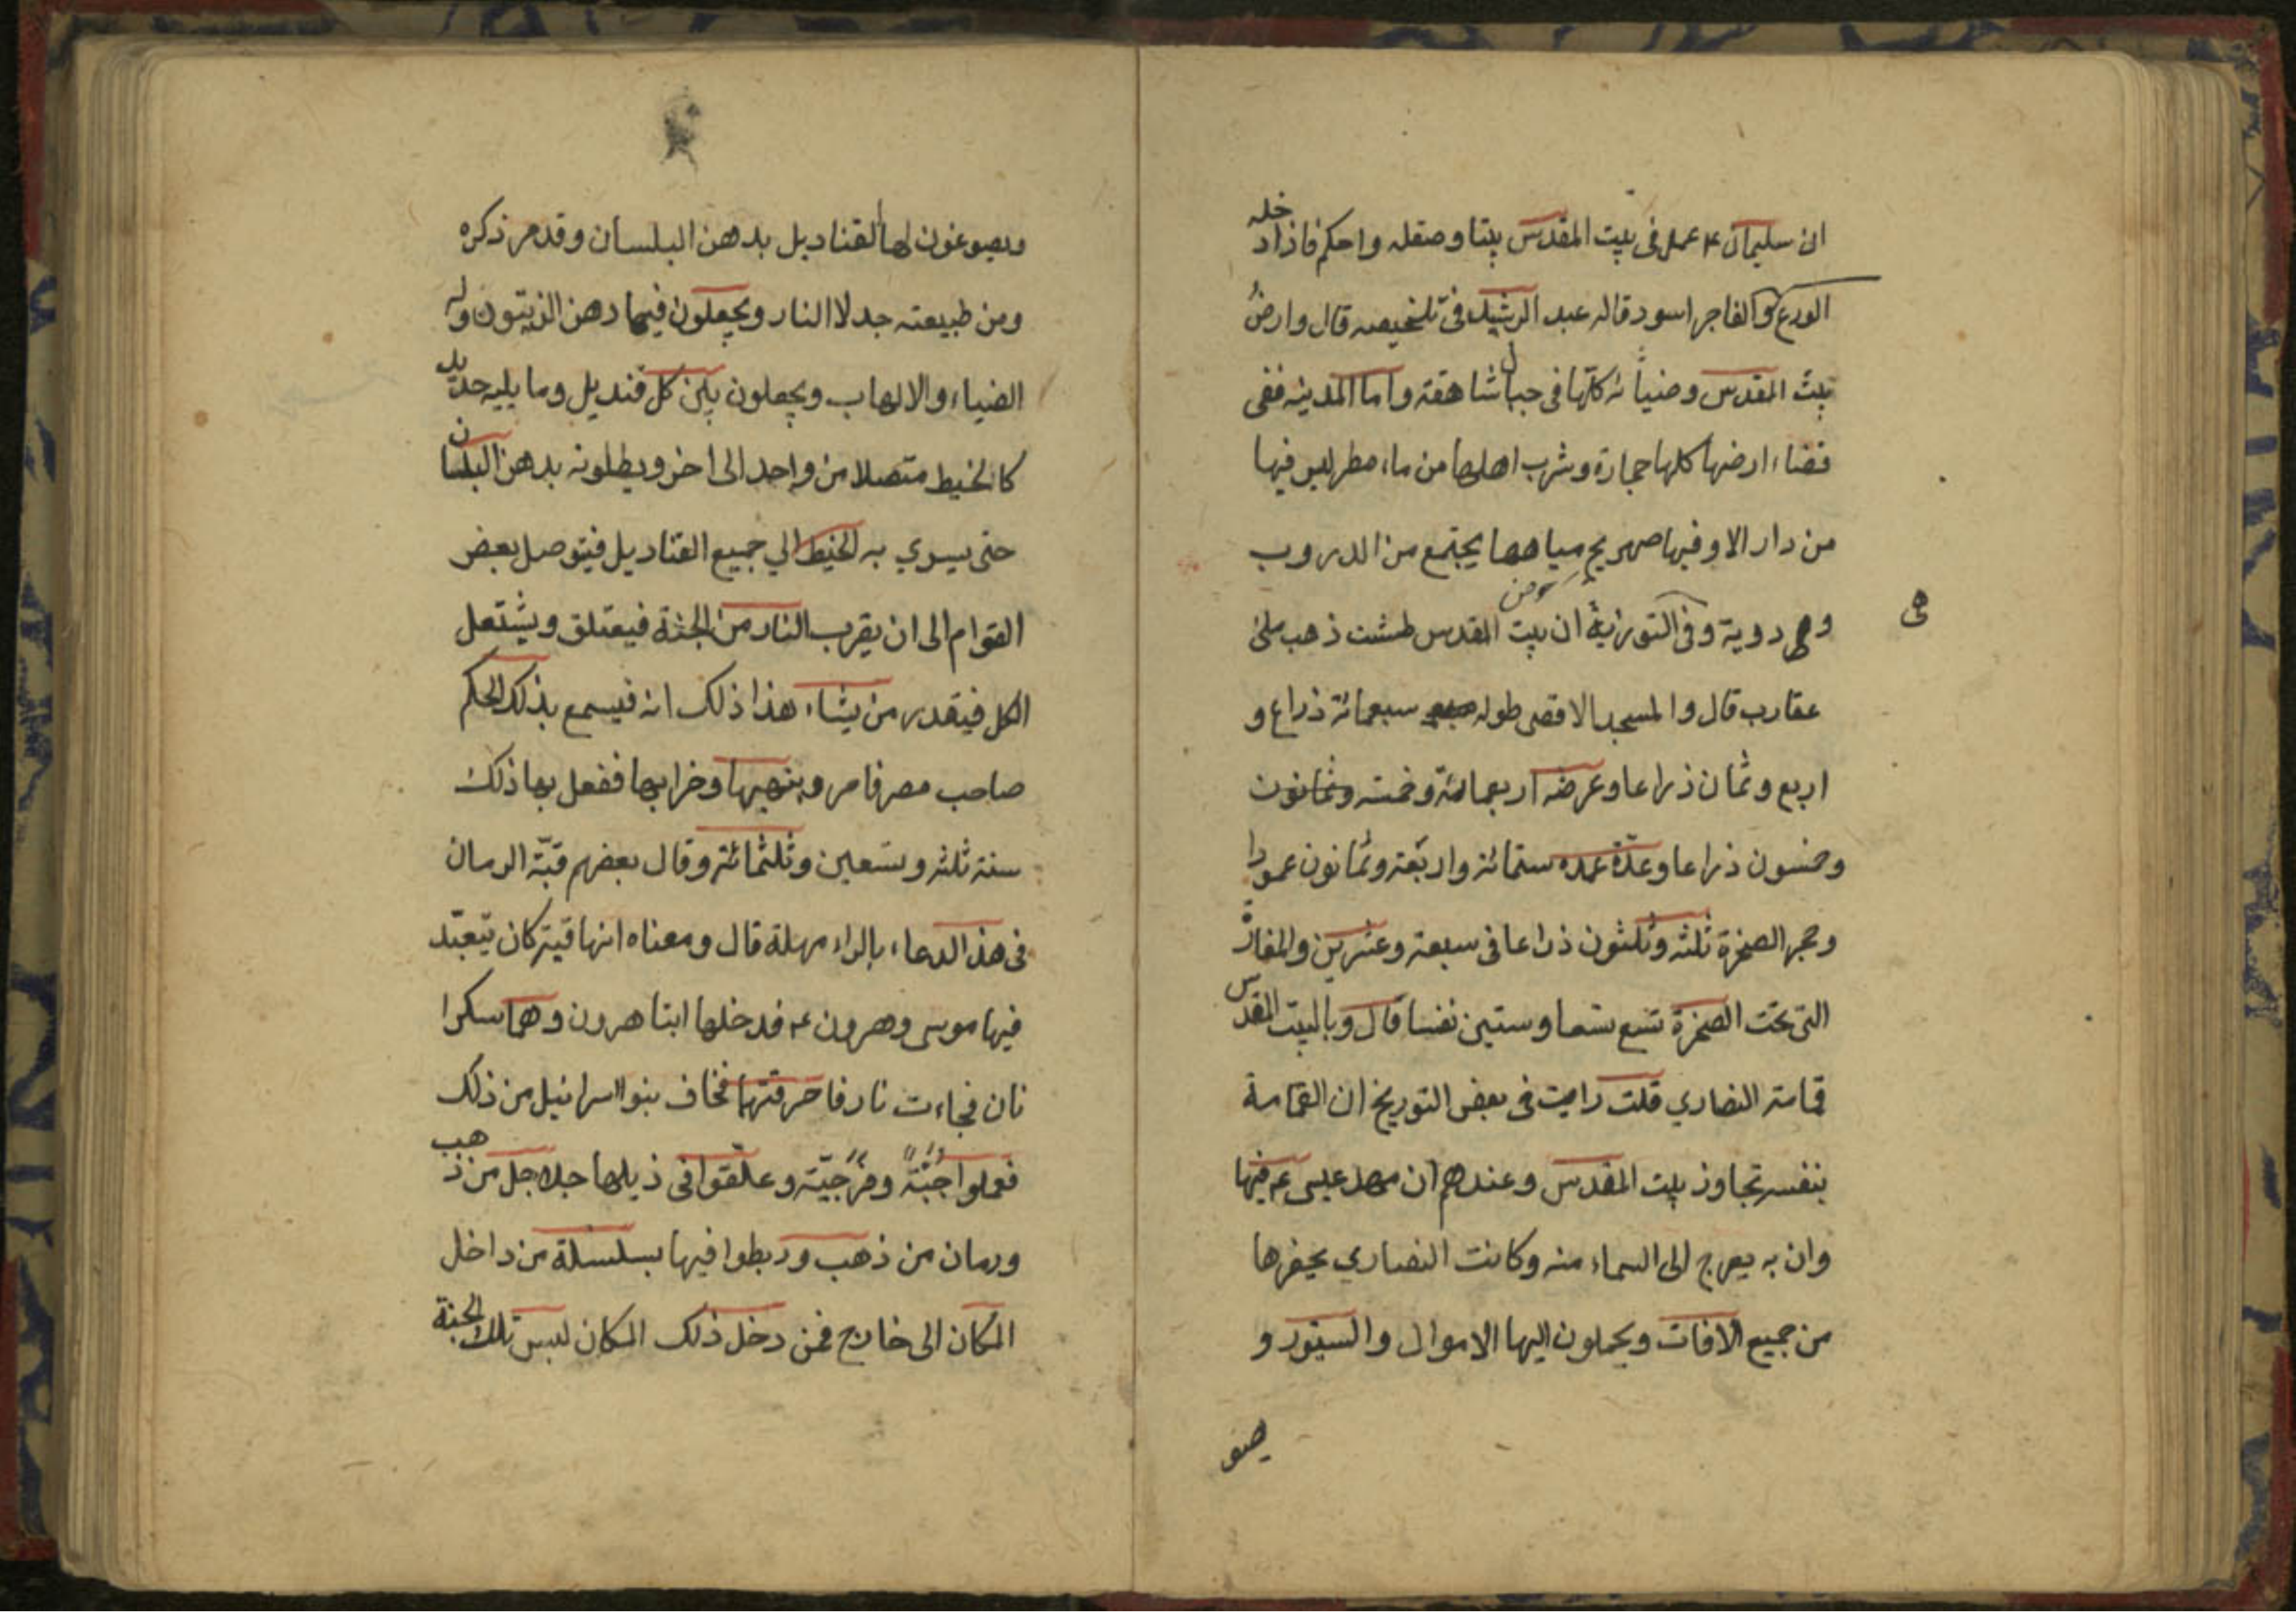 ان سليمان ع عمل فى بيت المقدس بيتا وصقله واحكم فاذا دخله
الورع والفاجر اسود قاله عبد الرشيد فى تلخيصه قال وارض
بيت المقدس وضياعه كلها فى جبال شاهقة واما المدينه ففى
فضاء ارضها كلها حجارة وشرب اهلها من ماء مطر ليس فيها
من دار الا وفيها صهريج مياهها يجتمع من الدروب
وهى دوية وفى التورية ان بيت المقدس طشت ذهب ملئ
هى
عقارب قال والمسجد الاقصى طوله سبعمائة ذراع و
اربع وثمان ذراعا وعرضه اربعمائة وخمسه وثمانون
وخمسون ذراعا وعدّة عمده ستمائة واربعة وثمانون عمودا
وحجر الصخرة ثلثه وثلثون ذراعا فى سبعة وعشرين والمغارة
التى تحت الصخرة تسع تسعا وستين نفسا قال وبالبيت المقدس
قمامة النصاري قلت رايت فى بعض التوريخ ان القمامة
بنفسه تجاوز بيت المقدس وعندهم ان مهد عيسى ع فيها
وان به يعرج الى السماء منه وكانت النصاري يحفرها
من جميع الافات ويحملون اليها الاموال والستور و
يصو
ويصوغون لها القناديل بدهن البلسان وقد مر ذكره
ومن طبيعته جدلا النار ويجعلون فيها دهن الزيتون وله
الضياء والالهاب ويجعلون بين كل قنديل وما يليه حديد
كالخيط متصلا من واحد الى اخر ويطلونه بدهن البلسان
حتى يسري به الخيط الي جميع القناديل فيتوصل بعض
القوام الى ان يقرب النار من الجثة فيعتلق ويشتعل
الكل فيقدر من يشاء هذا ذلك انه فيسمع بذلك الحكم
صاحب مصر فامر وبنهبها وخرابها ففعل بها ذلك
سنة ثلثه وتسعين وثلثمائة وقال بعضهم قبّة الرمان
فى هذ الدعاء بالراء مهملة قال ومعناه انها قبة كان يتعبّد
فيها موسى وهرون ع فدخلها ابنا هرون وهما سكرا
نان فجاءت نار فاحرقتها فخاف بنو اسرائيل من ذلك
فعملوا جبّة وفرجيّة وعلّقوا فى ذيلها جلاجل من ذهب
ورمان من ذهب وربطوا فيها بسلسلة من داخل
المكان الى خارج فمن دخل ذلك المكان لبس تلك الجبة